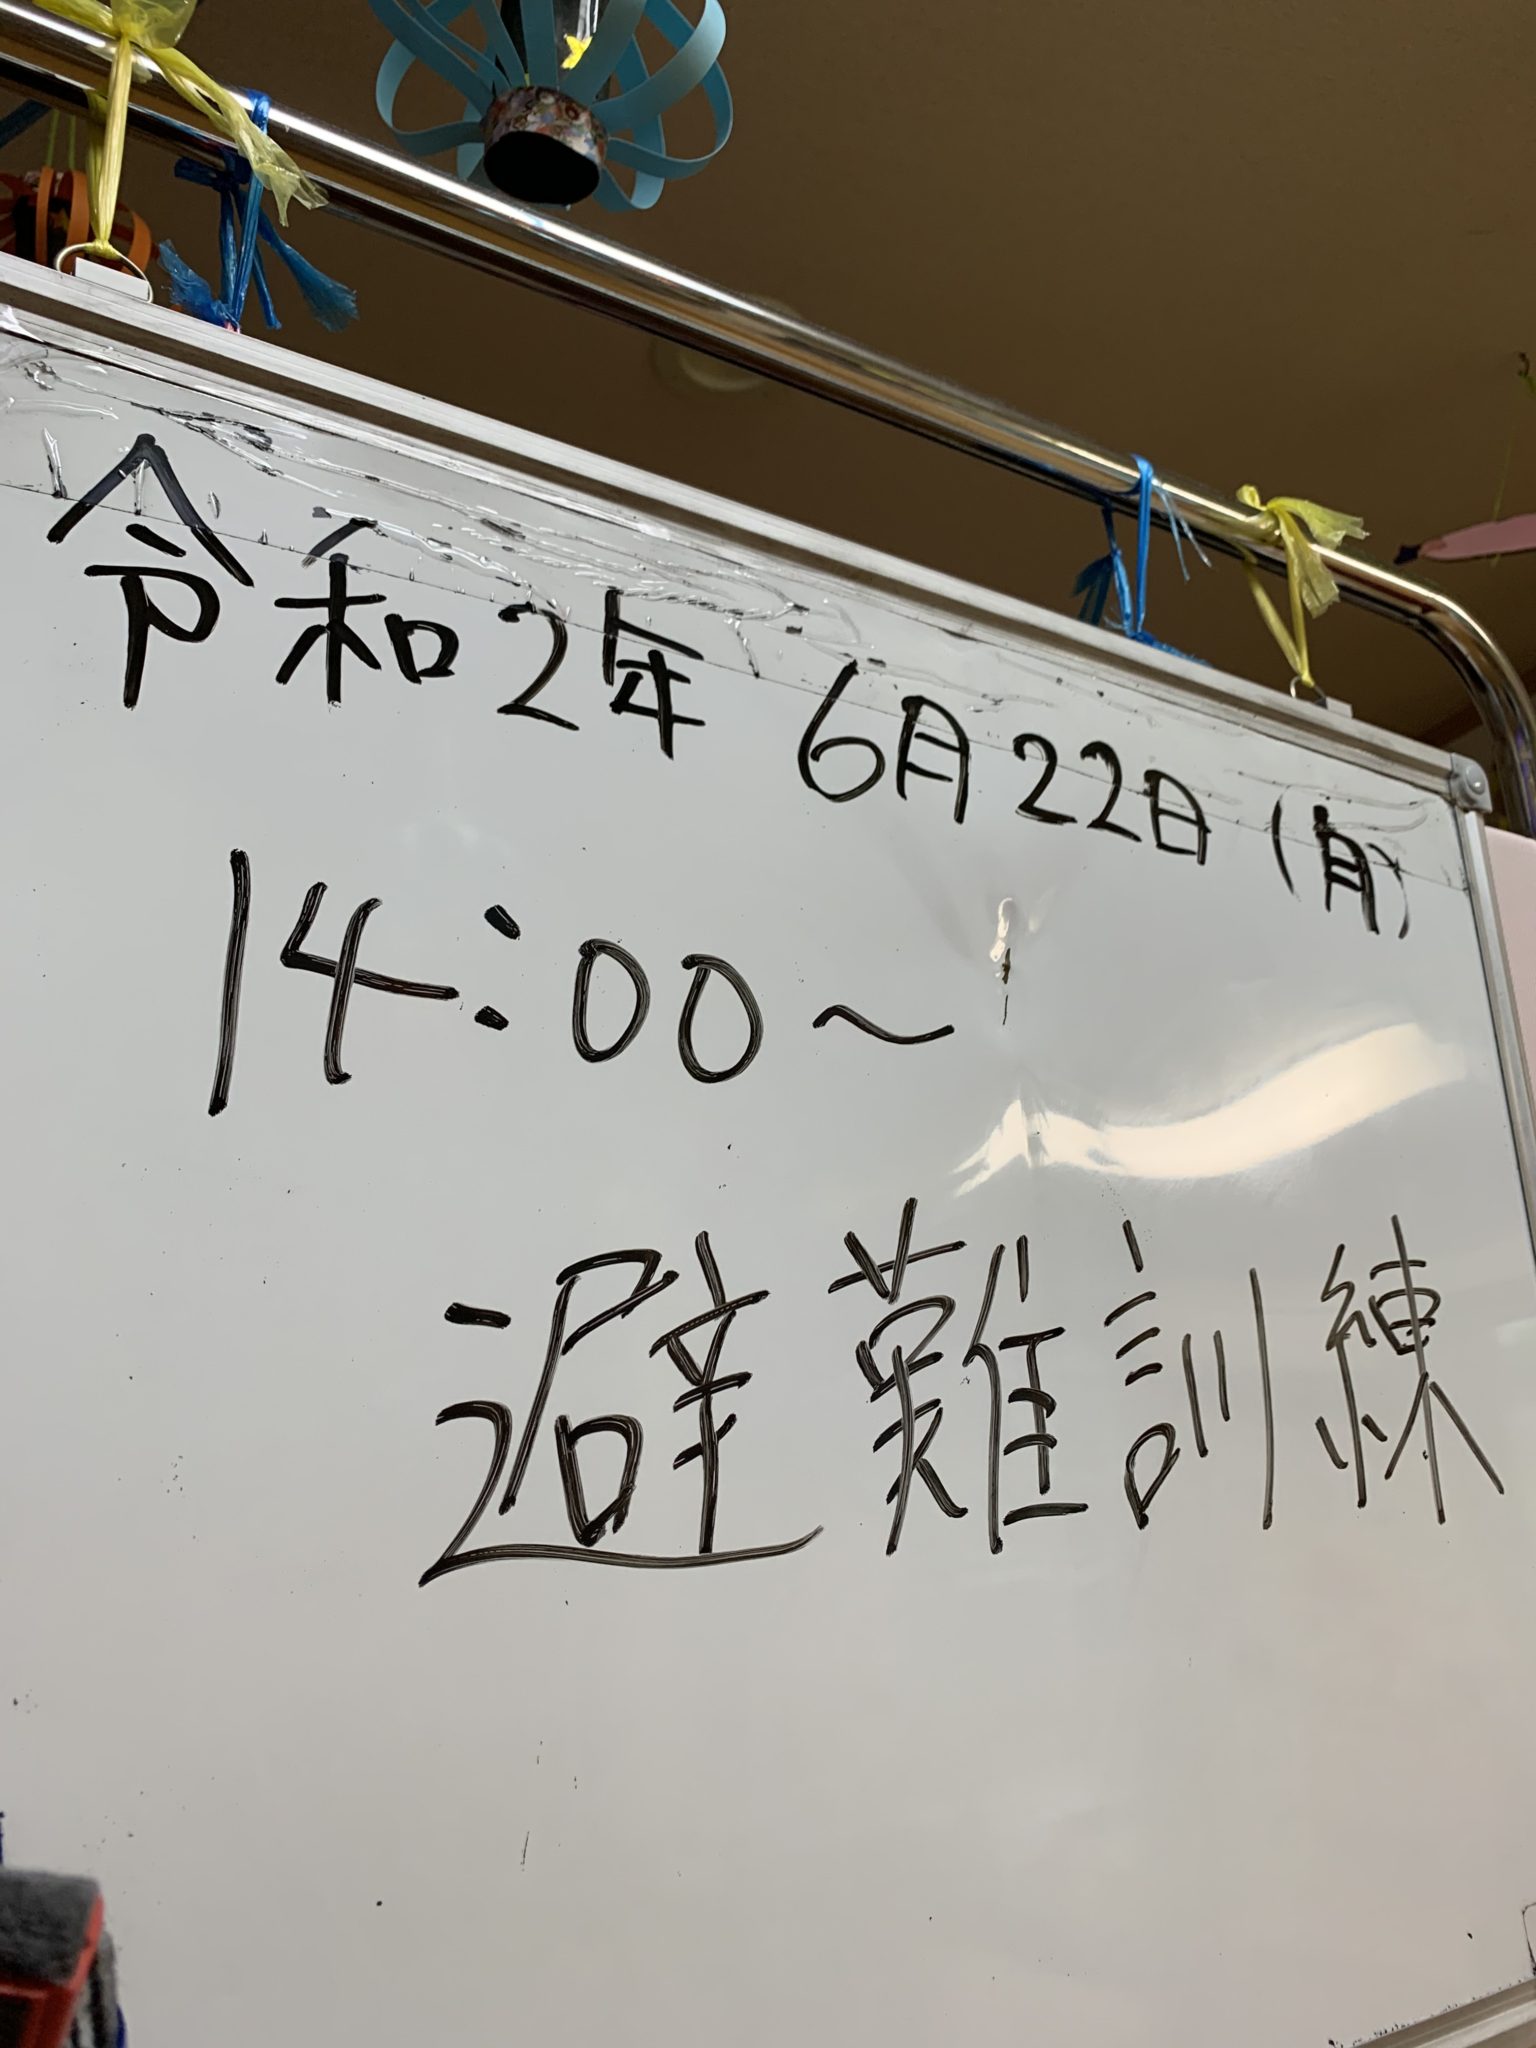 令和2年 6月22日(月)
14:00～
避難訓練